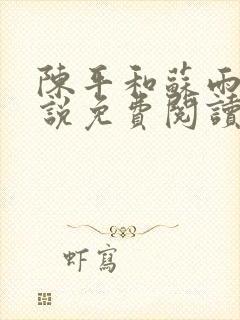 陳平和蘇雨
說免費閱讀
虾寫